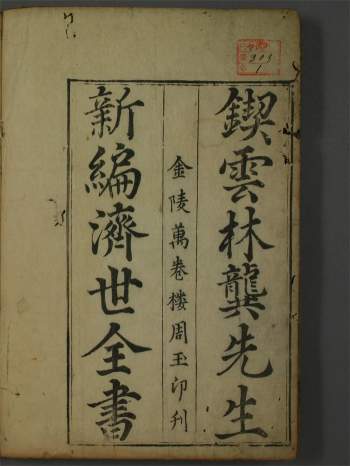 鍥雲林龔先生
金陵萬卷樓周玉印刋
新編濟世全書
203
1